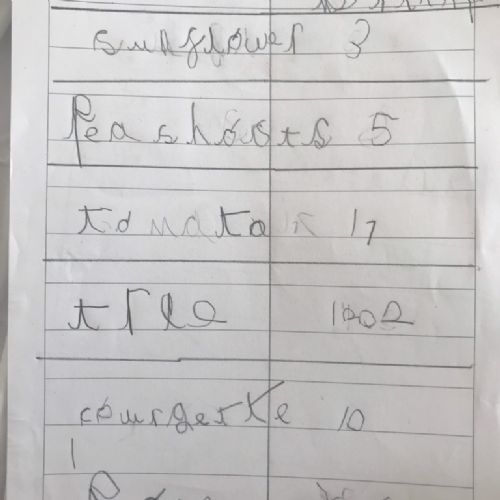 sunflower 3
Pea shoots 5
tomato 17
tree 1002
courgette 10
1